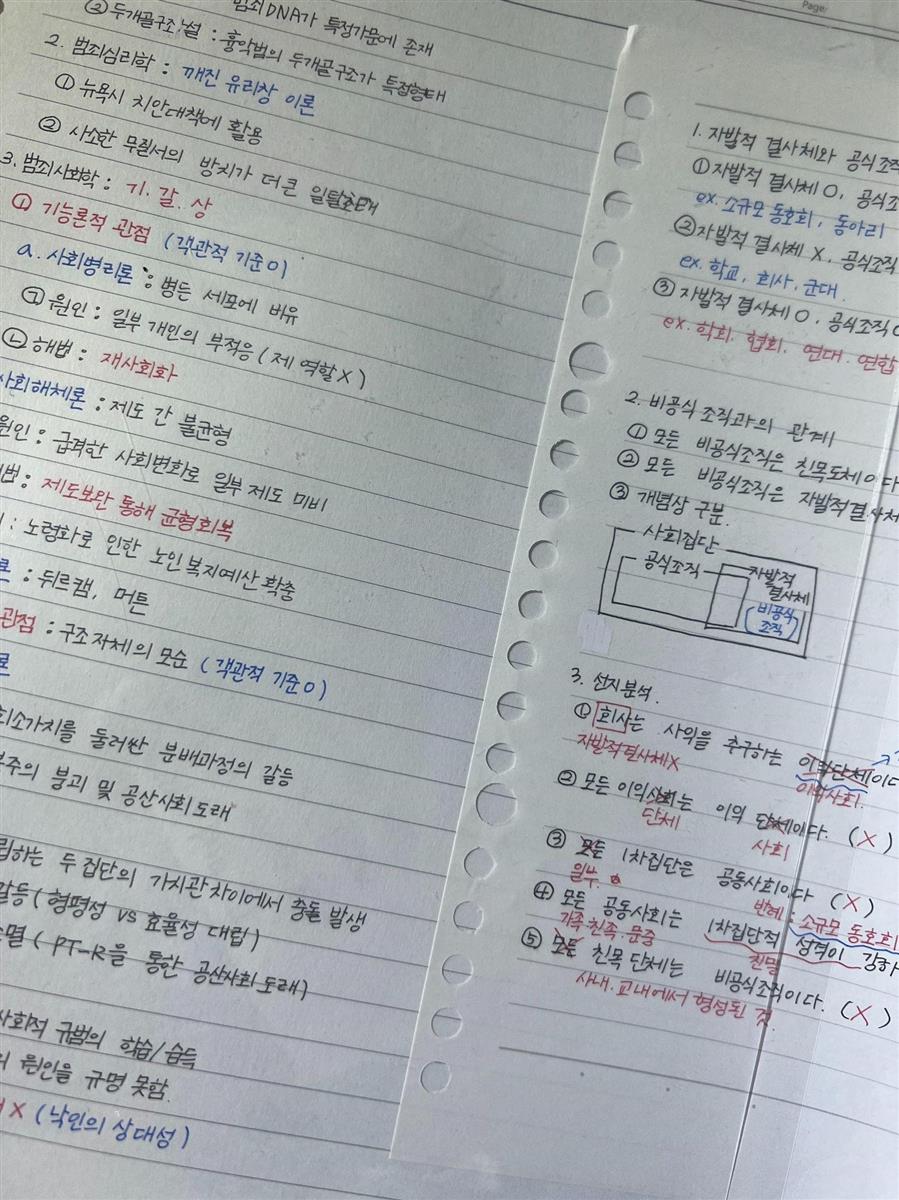 Page
범죄DNA가 특정가문에 존재
② 두개골구조설 : 흉악범의 두개골구조가 특정형태
2. 범죄심리학 : 깨진 유리창 이론
① 뉴욕시 치안대책에 활용
② 사소한 무질서의 방치가 더 큰 일탈초래
3. 범죄사회학 : 기. 갈. 상
① 기능론적 관점 (객관적 기준 O)
a. 사회병리론 : 병든 세포에 비유
㉠ 원인 : 일부 개인의 부적응 (제 역할 X)
㉡ 해법 : 재사회화
사회해체론 : 제도 간 불균형
원인 : 급격한 사회변화로 일부 제도 미비
법 : 제도보완 통해 균형회복
: 노령화로 인한 노인복지예산 확충
론 : 뒤르캠, 머튼
관점 : 구조 자체의 모순 (객관적 기준 O)
론
희소가치를 둘러싼 분배과정의 갈등
본주의 붕괴 및 공산사회 도래
립하는 두 집단의 가치관 차이에서 충돌 발생
갈등 (형평성 vs 효율성 대립)
소멸 (PT-R을 통한 공산사회 도래)
사회적 규범의 학습/습득
의 원인을 규명 못함.
X (낙인의 상대성)
1. 자발적 결사체와 공식조직
① 자발적 결사체 O, 공식조
ex. 소규모 동호회, 동아리
② 자발적 결사체 X, 공식조직
ex. 학교, 회사, 군대.
③ 자발적 결사체 O, 공식조직 O
ex. 학회. 협회. 연대. 연합
2. 비공식 조직과의 관계
① 모든 비공식조직은 친목단체이다
② 모든 비공식조직은 자발적결사체
③ 개념상 구분.
사회집단
공식조직
자발적
결사체
(비공식
조직)
3. 선지분석.
① 회사는 사익을 추구하는 이익단체이다
자발적결사체X
이익사회.
② 모든 이익사회는 이익 단체이다. (X)
단체
사회
③ 모든 1차집단은 공동사회이다 (X)
일부
반례 : 소규모 동호회
④ 모든 공동사회는 1차집단적 성격이 강하
가족·친족·문중
친밀
⑤ 모든 친목 단체는 비공식조직이다. (X)
사내·교내에서 형성된 것.